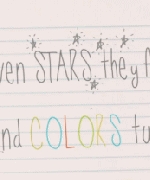 ven STARS they f
nd COLORS tu